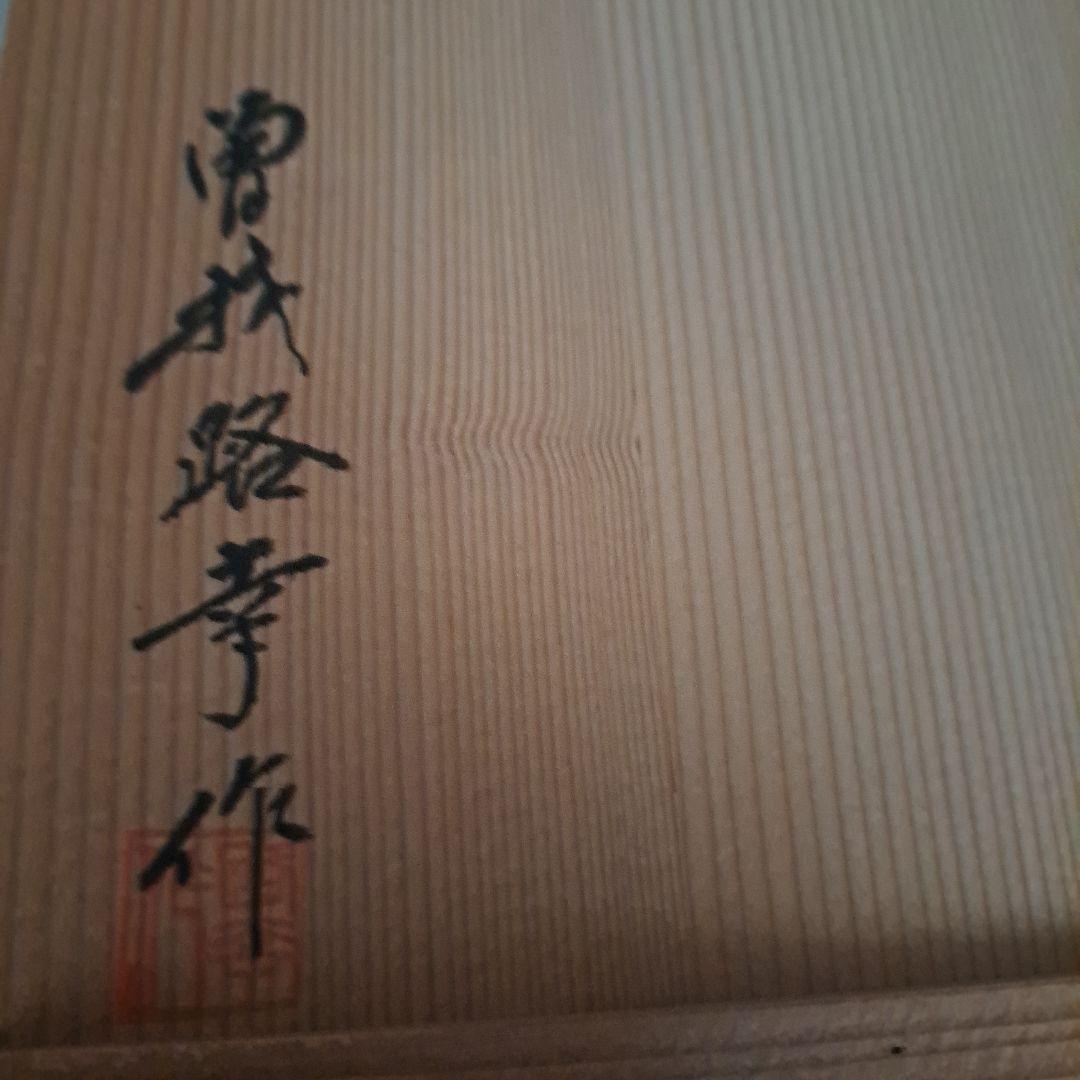 曽我路幸作